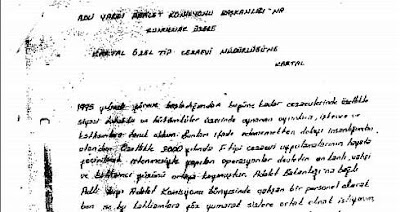 ADLİ YARGI ADALET KOMİSYONU BAŞKANLIĞI'NA
SUNULMAK ÜZERE
KARTAL ÖZEL TİP CEZAEVİ MÜDÜRLÜĞÜNE
KARTAL
1995 yılında göreve başladığımdan bugüne kadar cezaevlerinde özellikle
siyasi tutuklu ve hükümlüler üzerinde oynanan oyunlara, işkence ve
katliamlara tanık oldum. Bunları ifade edememekten dolayı insanlığımdan
utandım. Özellikle 2000 yılında F tipi cezaevi uygulamalarının hayata
geçirilmek istenmesiyle yapılan operasyonlar devletin en kanlı, vahşi
ve katliamcı yüzünü ortaya koymuştur. Adalet Bakanlığı'na bağlı
Adli Yargı Adalet Komisyonu bünyesinde çalışan bir personel olarak
ben bu katliamlara göz yumarak sizlere ortak olmak istemiyorum